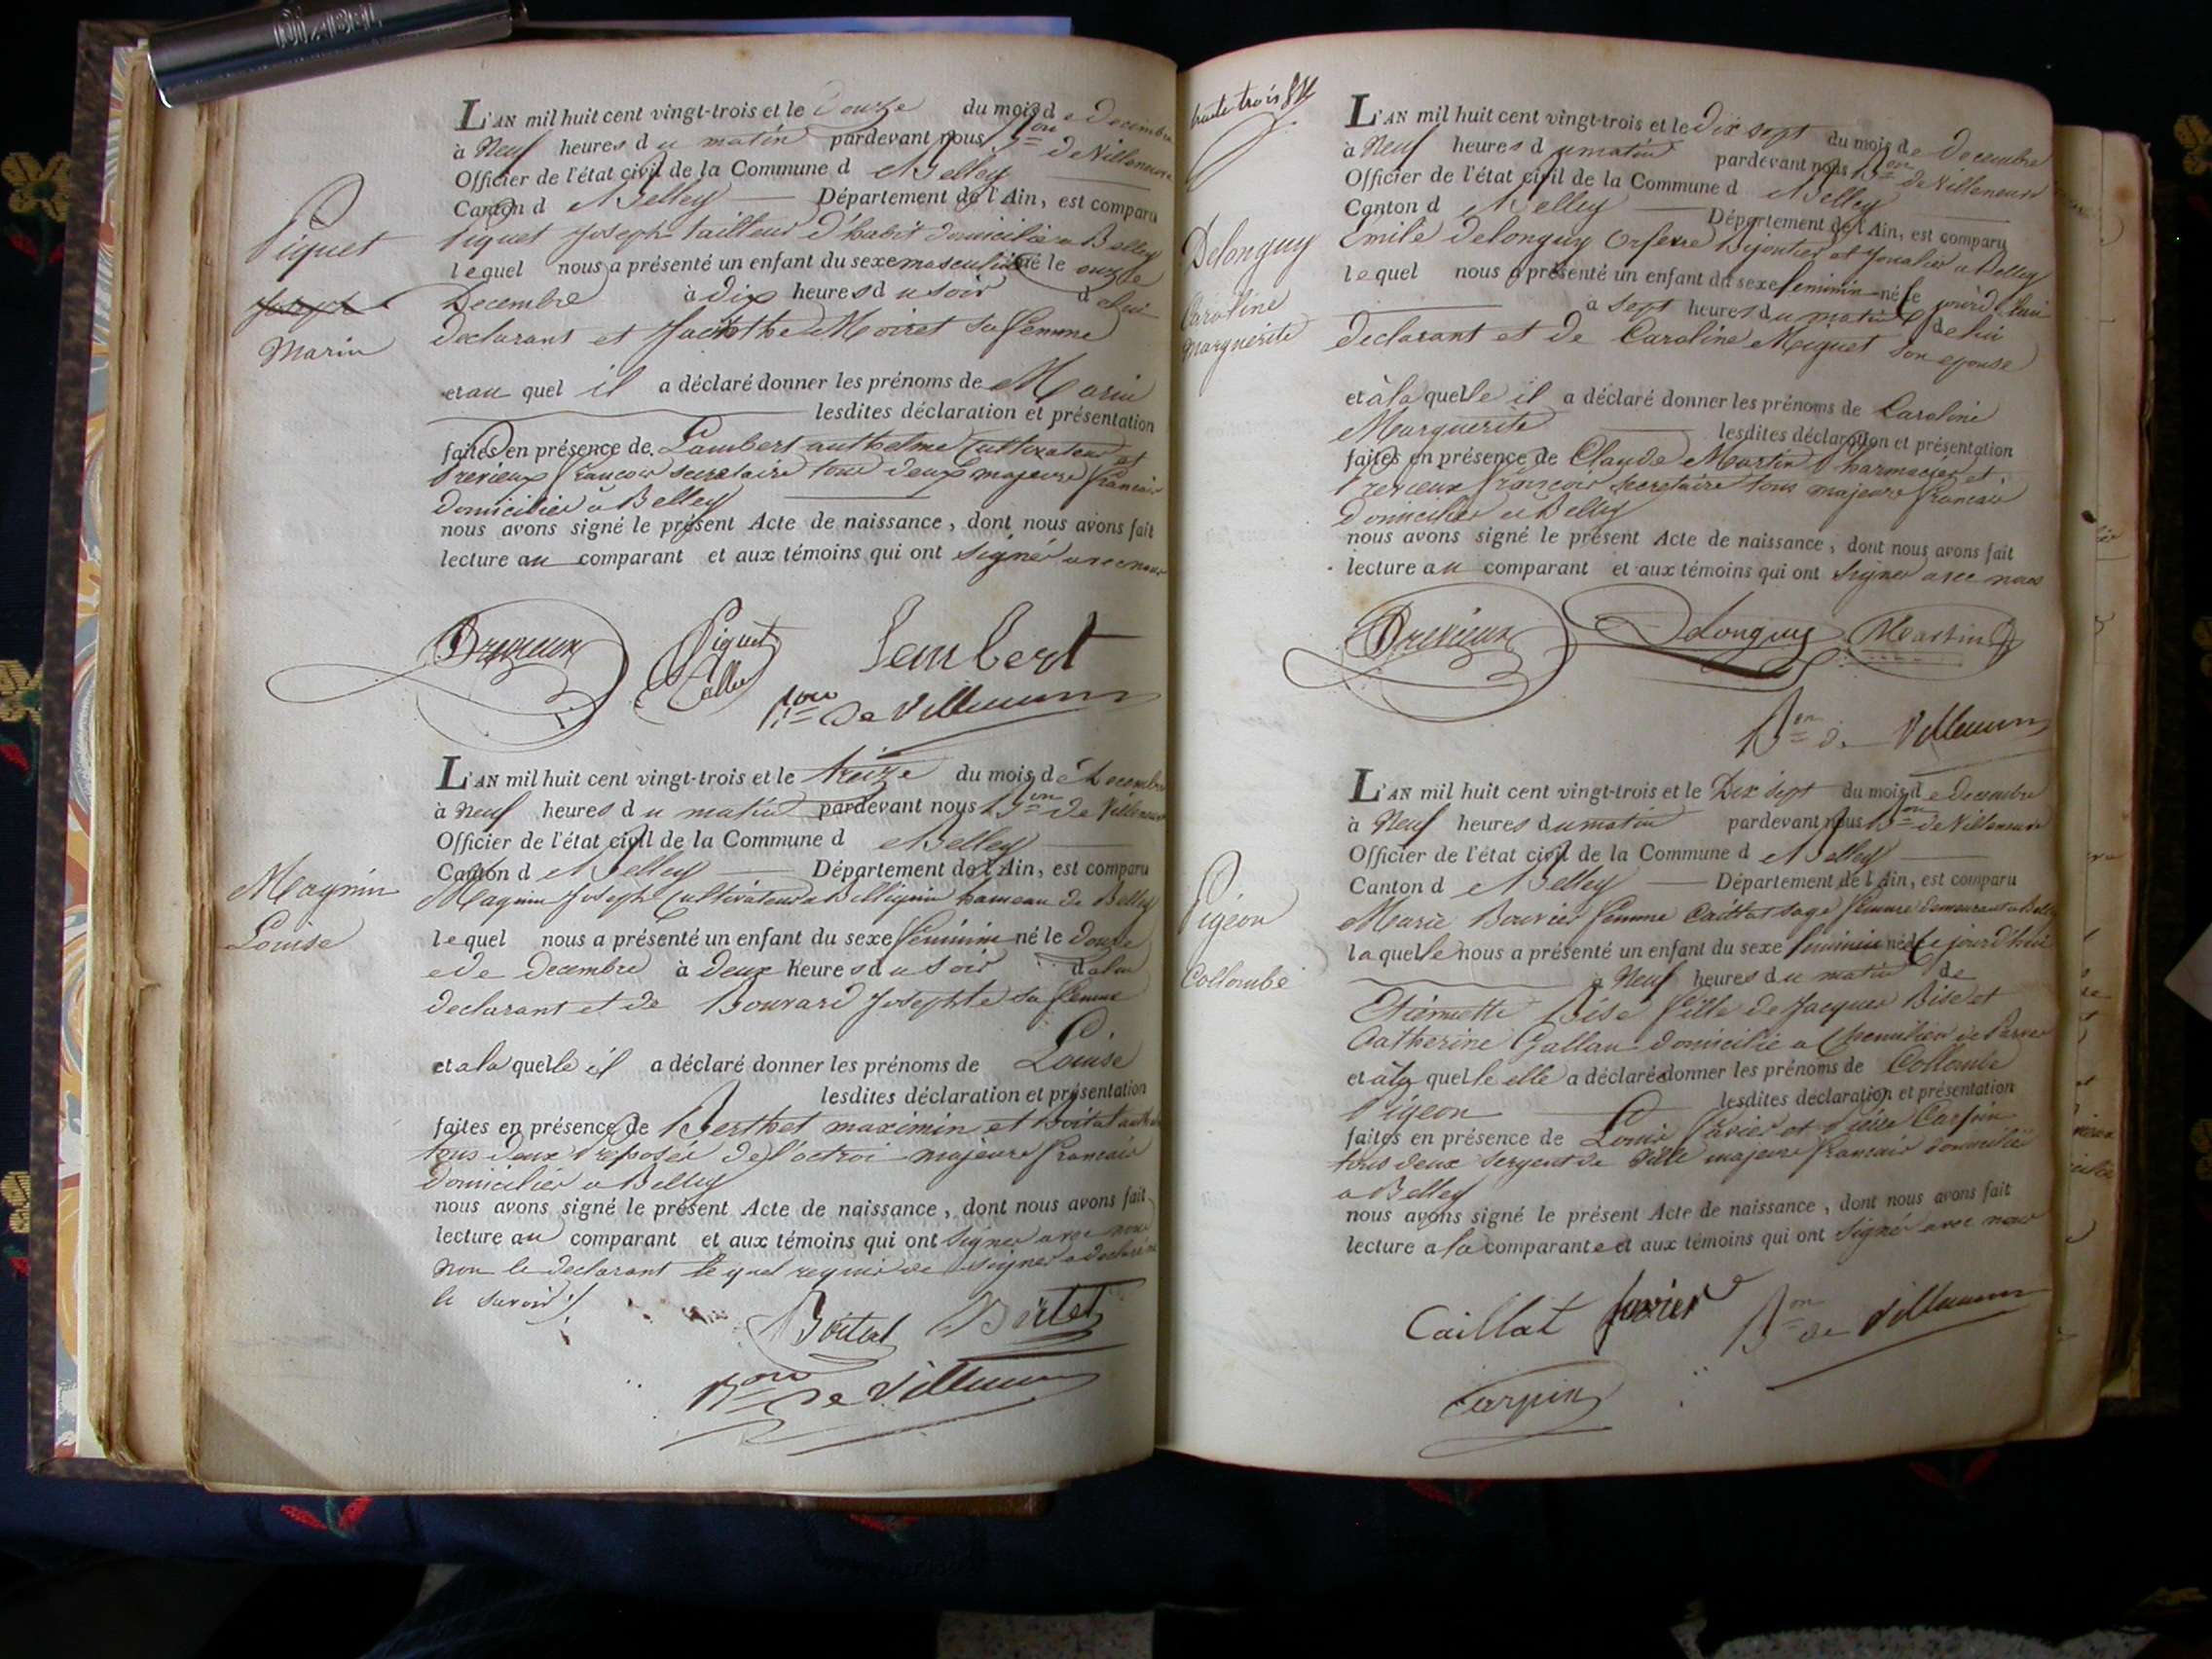 L'AN mil huit cent vingt-trois et le Douze du mois de Decembre
à Neuf heures du matin pardevant nous Bon de Villeneuve
Officier de l'état civil de la Commune d e Belley
Canton d e Belley Département de l'Ain, est comparu
Piquet Joseph tailleur d'habit domicilié a Belley
lequel nous a présenté un enfant du sexe masculin né le onze
Decembre à dix heures du soir de lui
declarant et Jacinthe Moiret sa femme
et au quel il a déclaré donner les prénoms de Marin
lesdites déclaration et présentation
faites en présence de Lambert anthelme Cultivateur et
Previeux francois secretaire tous deux majeurs francais
domicilies à Belley
nous avons signé le présent Acte de naissance, dont nous avons fait
lecture au comparant et aux témoins qui ont signés avec nous
Piquet
Joseph
Marin
Previeux Piquet Lambert
Bon de Villeneuve
L'AN mil huit cent vingt-trois et le treize du mois de Decembre
à Neuf heures du matin pardevant nous Bon de Villeneuve
Officier de l'état civil de la Commune d e Belley
Canton d e Belley Département de l'Ain, est comparu
Magnin Joseph Cultivateur a Billignin hameau de Belley
lequel nous a présenté un enfant du sexe féminin né le douze
de decembre à deux heures du soir de lui
declarant et de Bouvard Josephte sa femme
et a la quelle il a déclaré donner les prénoms de Louise
lesdites déclaration et présentation
faites en présence de Berthet maximin et Boitet
tous deux Preposés de l'octroi majeurs francais
domicilies a Belley
nous avons signé le présent Acte de naissance, dont nous avons fait
lecture au comparant et aux témoins qui ont signer avec nous
non le declarant lequel requis de signer a declaré ne
le savoir
Magnin
Louise
Boitet Bertet
Bon de Villeneuve
trente trois
L'AN mil huit cent vingt-trois et le dix sept du mois de Decembre
à Neuf heures du matin pardevant nous Bon de Villeneuve
Officier de l'état civil de la Commune d e Belley
Canton d e Belley Département de l'Ain, est comparu
Emile Delonguy Orfevre Bijoutier et Jouallier a Belley
lequel nous a présenté un enfant du sexe feminin né le jourd'hui
à sept heures du matin de lui
declarant et de Caroline Miquet son epouse
et à la quelle il a déclaré donner les prénoms de Caroline
Marguerite lesdites déclaration et présentation
faites en présence de Claude Martin Pharmacien et
Previeux francois secretaire tous majeurs francais
domicilies a Belley
nous avons signé le présent Acte de naissance, dont nous avons fait
lecture au comparant et aux témoins qui ont signer avec nous
Delonguy
Caroline
Marguerite
Previeux Delonguy Martin
Bon de Villeneuve
L'AN mil huit cent vingt-trois et le Dix sept du mois de Decembre
à Neuf heures du matin pardevant nous Bon de Villeneuve
Officier de l'état civil de la Commune d e Belley
Canton d e Belley Département de l'Ain, est comparu
Marie Bouvier femme Caillat sage femme demeurant a Belley
la quelle nous a présenté un enfant du sexe feminin né le jourd'hui
à Neuf heures du matin de
Etiennette Bise fille de Jacques Bise et
Catherine Gallau domicilié a
et à la quelle elle a déclaré donner les prénoms de Collombe
Pigeon lesdites déclaration et présentation
faites en présence de Louis Favier et Pierre Carpin
tous deux sergent de ville majeurs francais domicilié
a Belley
nous avons signé le présent Acte de naissance, dont nous avons fait
lecture a la comparante et aux témoins qui ont signé avec nous
Pigeon
Collombe
Caillat favier Bon de Villeneuve
Carpin